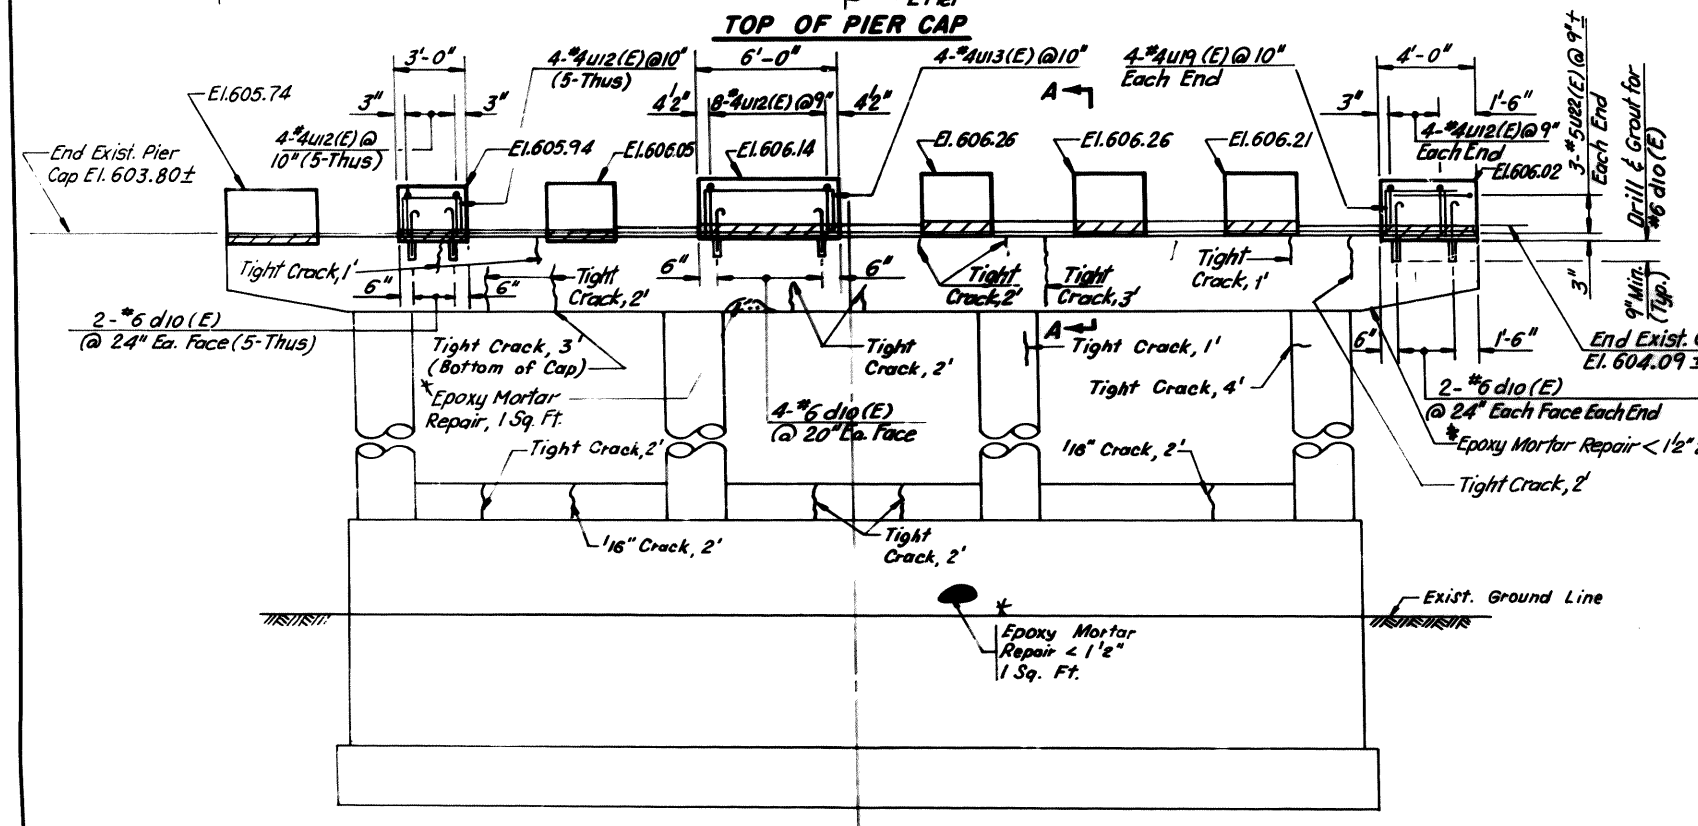 TOP OF PIER CAP
3'-0"
4-#4u12(E)@10"
(5-Thus)
6'-0"
4-#4u13(E)@10"
4-#4u19(E)@10"
Each End
4'-0"
3-#5u22(E)@9"±
Each End
Drill & Grout for
#6 d10(E)
El.605.74
3"
3"
4½"
8-#4u12(E)@9"
4½"
A
3"
1'-6"
4-#4u12(E)@
10"(5-Thus)
El.605.94
El.606.05
El.606.14
El.606.26
El.606.26
El.606.21
4-#4u12(E)@9"
Each End
El.606.02
End Exist. Pier
Cap El. 603.80±
Tight Crack, 1'
Tight
Crack, 2'
6"
6"
6"
6"
Tight
Crack, 2'
Tight
Crack, 3'
Tight
Crack, 1'
3"
9" Min.
(Typ.)
2-#6 d10(E)
@ 24" Ea. Face (5-Thus)
Tight Crack, 3'
(Bottom of Cap)
Tight
Crack, 2'
A
Tight Crack, 1'
6"
1'-6"
End Exist.
El. 604.09±
*Epoxy Mortar
Repair, 1 Sq. Ft.
4-#6 d10(E)
@ 20" Ea. Face
Tight Crack, 4'
2-#6 d10(E)
@ 24" Each Face Each End
*Epoxy Mortar Repair < 1½"
Tight Crack, 2'
Tight Crack, 2'
1/16" Crack, 2'
1/16" Crack, 2'
Tight
Crack, 2'
Exist. Ground Line
*
Epoxy Mortar
Repair < 1½"
1 Sq. Ft.